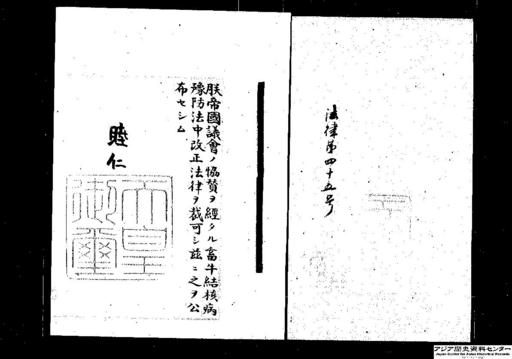 法律第四十五号
朕帝國議會ノ協賛ヲ經タル畜牛結核病
豫防法中改正法律ヲ裁可シ茲ニ之ヲ公
布セシム
睦仁
天皇
御璽
アジア歴史資料センター
Japan Center for Asian Historical Records